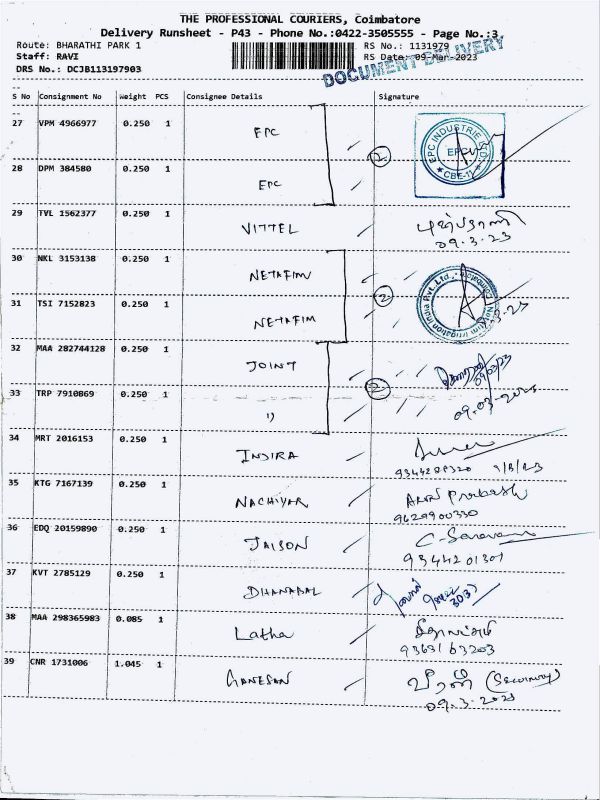 THE PROFESSIONAL COURIERS, Coimbatore
Delivery Runsheet - P43 - Phone No.:0422-3505555 - Page No.:3
Route: BHARATHI PARK 1 RS No.: 1131979
Staff: RAVI RS Date: 09-Mar-2023
DRS No.: DCJB113197903 DOCUMENT DELIVERY
S No Consignment No Weight PCS Consignee Details Signature
27 VPM 4966977 0.250 1 EPC 2 EPC INDUSTRIE LTD. EPC CBE-11
28 DPM 384580 0.250 1 EPC
29 TVL 1562377 0.250 1 VITTEL
09.3.23
30 NKL 3153138 0.250 1 NETAFIM 2 Netafim Irrigation India Pvt. Ltd., Coimbatore
31 TSI 7152823 0.250 1 NETAFIM
32 MAA 282744128 0.250 1 JOINT 2 09/03/23
33 TRP 7910869 0.250 1 ,,
34 MRT 2016153 0.250 1 INDIRA
35 KTG 7167139 0.250 1 NACHIYAR Arun Prakash
9629900330
36 EDQ 20159890 0.250 1 JAISON C-Saravanan
9344201301
37 KVT 2785129 0.250 1 DHANABAL
38 MAA 298365983 0.085 1 Latha
9363163203
39 CNR 1731006 1.045 1 GANESAN (Security)